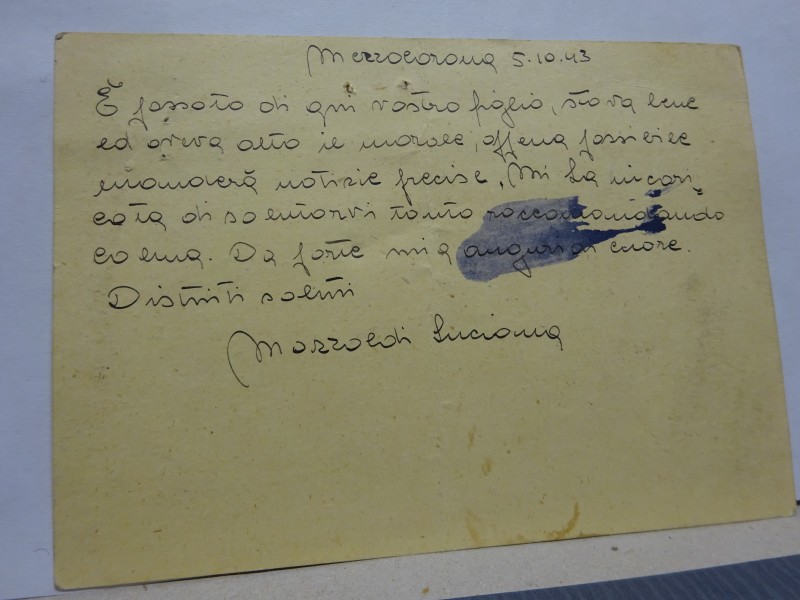 Mezzocorona 5.10.43
È passato di qui vostro figlio, stava bene
ed aveva alto il morale, appena possibile
manderà notizie precise. Mi ha incari
cata di salutarvi tanto raccomandando
calma. Da parte mia auguri di cuore.
Distinti saluti
Mazzoldi Luciana